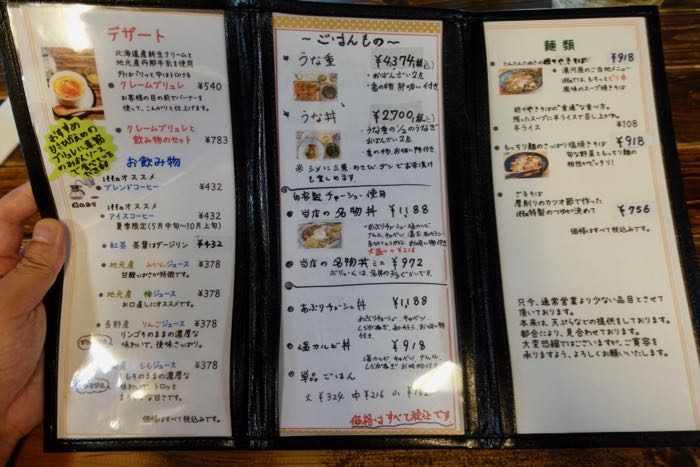 デザート
北海道産純生クリームと
地元産丹那牛乳を使用
外はパリッと中はトロける
クレームブリュレ ¥540
お客様の目の前でバーナーを
使って、こんがりと仕上げます。
クレームブリュレと
飲み物のセット ¥783
おすすめ
お飲み物
ittaオススメ
ブレンドコーヒー ¥432
ittaオススメ
アイスコーヒー ¥432
夏季限定(5月中旬〜10月上旬)
紅茶 茶葉はダージリン ¥432
地元産 みかんジュース ¥378
甘酸っぱさが特徴です。
地元産 梅ジュース ¥378
お口直しにオススメです。
長野産 りんごジュース ¥378
リンゴそのままの濃厚な
味わいで、後味さっぱり。
産 ももジュース ¥378
ももそのままの濃厚な
味わいで、トロッと
まろやかな甘さです。
価格はすべて税込みです。
〜ごはんもの〜
うな重 ¥4374(税込)
・おばんざい2点
・香の物 肝吸い付き
うな丼 ¥2700(税込)
・うな重の1/2のうなぎ
・おばんざい2点
・香の物、お吸い物付き
※シメに三葉、わさび、ダシでお茶漬け
も楽しめます
自家製チャーシュー使用
当店の名物丼 ¥1,188
大盛り+¥216
当店の名物丼ミニ ¥972
ボリュームは、名丼の2/3ぐらいです。
あぶりチャーシュー丼 ¥1,188
あぶりチャーシュー、キャベツ
しらがねぎ、和カラシ、お吸い物付き
塩カルビ丼 ¥918
塩カルビ、キャベツ、ナムル、
しらがねぎ お吸い物付き
単品ごはん
大 ¥324 中 ¥216 小 ¥162
価格はすべて税込です
麺類
たんたんたぬきの担々やきそば ¥918
湯河原のご当地メニュー
ittaでは、もちっとピリ辛
風味のスープ焼きそば
担々やきそばの"普通"な食べ方。
残ったスープに半ライスで召し上がれ。
半ライス ¥108
もっちり麺のさっぱり塩焼きそば ¥918
旬な野菜ともっちり麺の
相性がピッタリ!
ざるそば
厚削りのカツオ節で作った
itta特製のつゆが決めて ¥756
価格はすべて税込みです。
只今、通常営業より少ない品目とさせて
頂いております。
本来は、天ぷらなどの提供をしております。
都合により、見合わせております。
大変恐縮ではございますが、ご寛容を
承りますよう、よろしくお願いいたします。